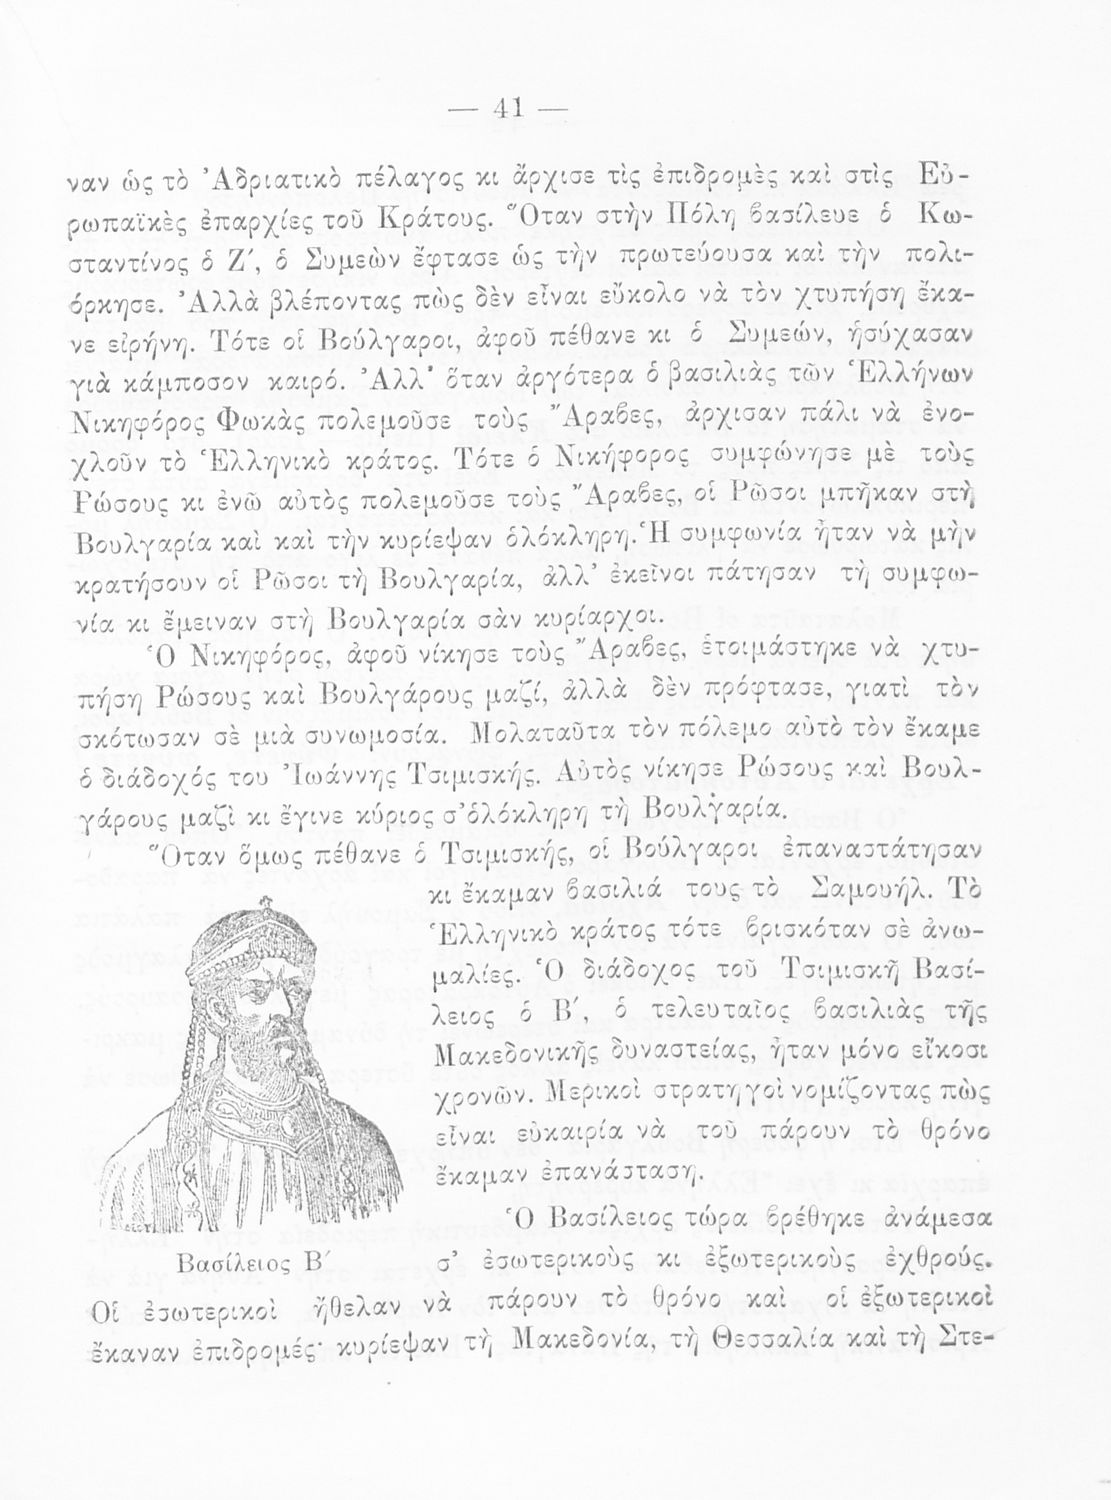 — 41 —
ναν ὡς τὸ Ἀδριατικὸ πέλαγος κι ἄρχισε τὶς ἐπιδρομὲς καὶ στὶς Εὐ-
ρωπαϊκὲς ἐπαρχίες τοῦ Κράτους. Ὅταν στὴν Πόλη βασίλευε ὁ Κω-
σταντίνος ὁ Ζ΄, ὁ Συμεὼν ἔφτασε ὡς τὴν πρωτεύουσα καὶ τὴν πολι-
όρκησε. Ἀλλὰ βλέποντας πὼς δὲν εἶναι εὔκολο νὰ τὸν χτυπήση ἔκα-
νε εἰρήνη. Τότε οἱ Βούλγαροι, ἀφοῦ πέθανε κι ὁ Συμεών, ἡσύχασαν
γιὰ κάμποσον καιρό. Ἀλλ' ὅταν ἀργότερα ὁ βασιλιὰς τῶν Ἑλλήνων
Νικηφόρος Φωκὰς πολεμοῦσε τοὺς Ἄραβες, ἄρχισαν πάλι νὰ ἐνο-
χλοῦν τὸ Ἑλληνικὸ κράτος. Τότε ὁ Νικήφορος συμφώνησε μὲ τοὺς
Ρώσους κι ἐνῶ αὐτὸς πολεμοῦσε τοὺς Ἄραβες, οἱ Ρῶσοι μπῆκαν στὴ
Βουλγαρία καὶ καὶ τὴν κυρίεψαν ὁλόκληρη. Ἡ συμφωνία ἦταν νὰ μὴν
κρατήσουν οἱ Ρῶσοι τὴ Βουλγαρία, ἀλλ' ἐκεῖνοι πάτησαν τὴ συμφω-
νία κι ἔμειναν στὴ Βουλγαρία σὰν κυρίαρχοι.
Ὁ Νικηφόρος, ἀφοῦ νίκησε τοὺς Ἄραβες, ἑτοιμάστηκε νὰ χτυ-
πήση Ρώσους καὶ Βουλγάρους μαζί, ἀλλὰ δὲν πρόφτασε, γιατὶ τὸν
σκότωσαν σὲ μιὰ συνωμοσία. Μολαταῦτα τὸν πόλεμο αὐτὸ τὸν ἔκαμε
ὁ διάδοχός του Ἰωάννης Τσιμισκής. Αὐτὸς νίκησε Ρώσους καὶ Βουλ-
γάρους μαζὶ κι ἔγινε κύριος σ' ὁλόκληρη τὴ Βουλγαρία.
Ὅταν ὅμως πέθανε ὁ Τσιμισκής, οἱ Βούλγαροι ἐπαναστάτησαν
κι ἔκαμαν βασιλιά τους τὸ Σαμουήλ. Τὸ
Ἑλληνικὸ κράτος τότε βρισκόταν σὲ ἀνω-
μαλίες. Ὁ διάδοχος τοῦ Τσιμισκῆ Βασί-
λειος ὁ Β΄, ὁ τελευταῖος βασιλιὰς τῆς
Μακεδονικῆς δυναστείας, ἦταν μόνο εἴκοσι
χρονῶν. Μερικοὶ στρατηγοὶ νομίζοντας πὼς
εἶναι εὐκαιρία νὰ τοῦ πάρουν τὸ θρόνο
ἔκαμαν ἐπανάσταση.
Ὁ Βασίλειος τώρα βρέθηκε ἀνάμεσα
Βασίλειος Β΄
σ' ἐσωτερικοὺς κι ἐξωτερικοὺς ἐχθρούς.
Οἱ ἐσωτερικοὶ ἤθελαν νὰ πάρουν τὸ θρόνο καὶ οἱ ἐξωτερικοὶ
ἔκαναν ἐπιδρομές· κυρίεψαν τὴ Μακεδονία, τὴ Θεσσαλία καὶ τὴ Στε-